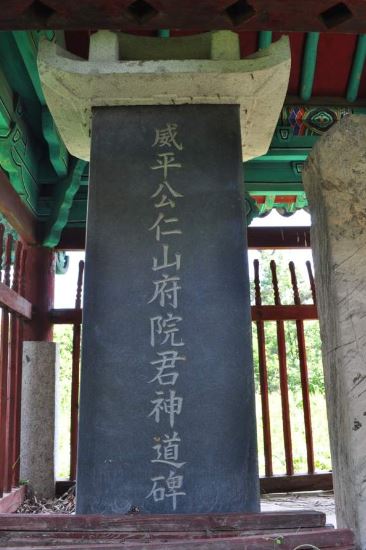 威平公仁山府院君神道碑